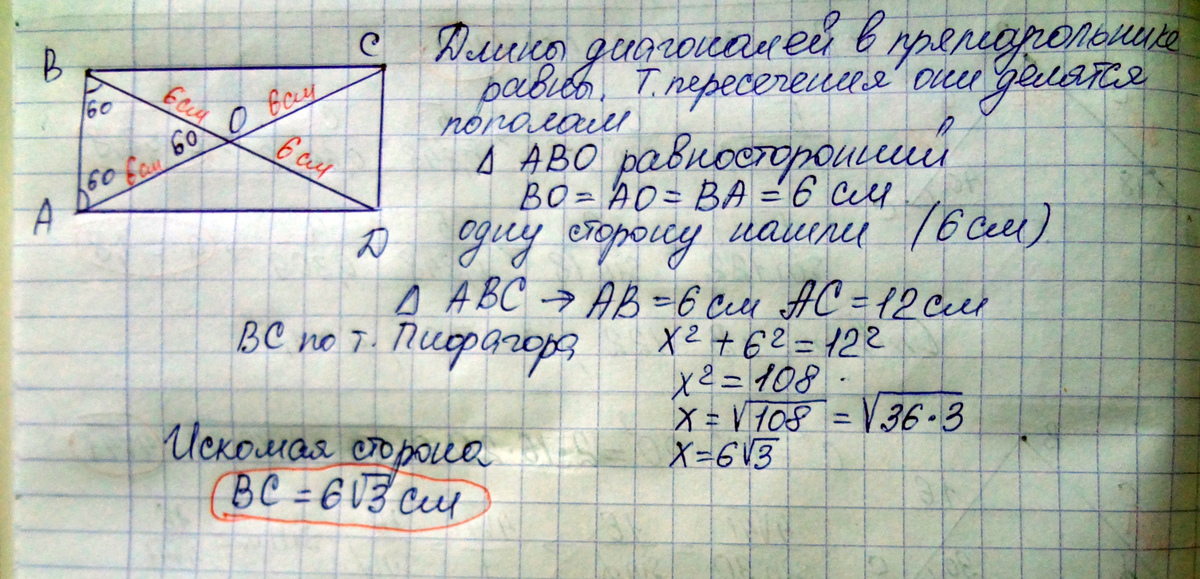 B
C
60
6 см
6 см
O
60
60
6 см
6 см
A
D
Длины диагоналей в прямоугольнике
равны. Т. пересечения они делятся
пополам
Δ ABO равносторонний
BO = AO = BA = 6 см
одну сторону нашли (6 см)
Δ ABC → AB = 6 см AC = 12 см
BC по т. Пифагора x² + 6² = 12²
x² = 108
x = √108 = √36·3
x = 6√3
Искомая сторона
BC = 6√3 см